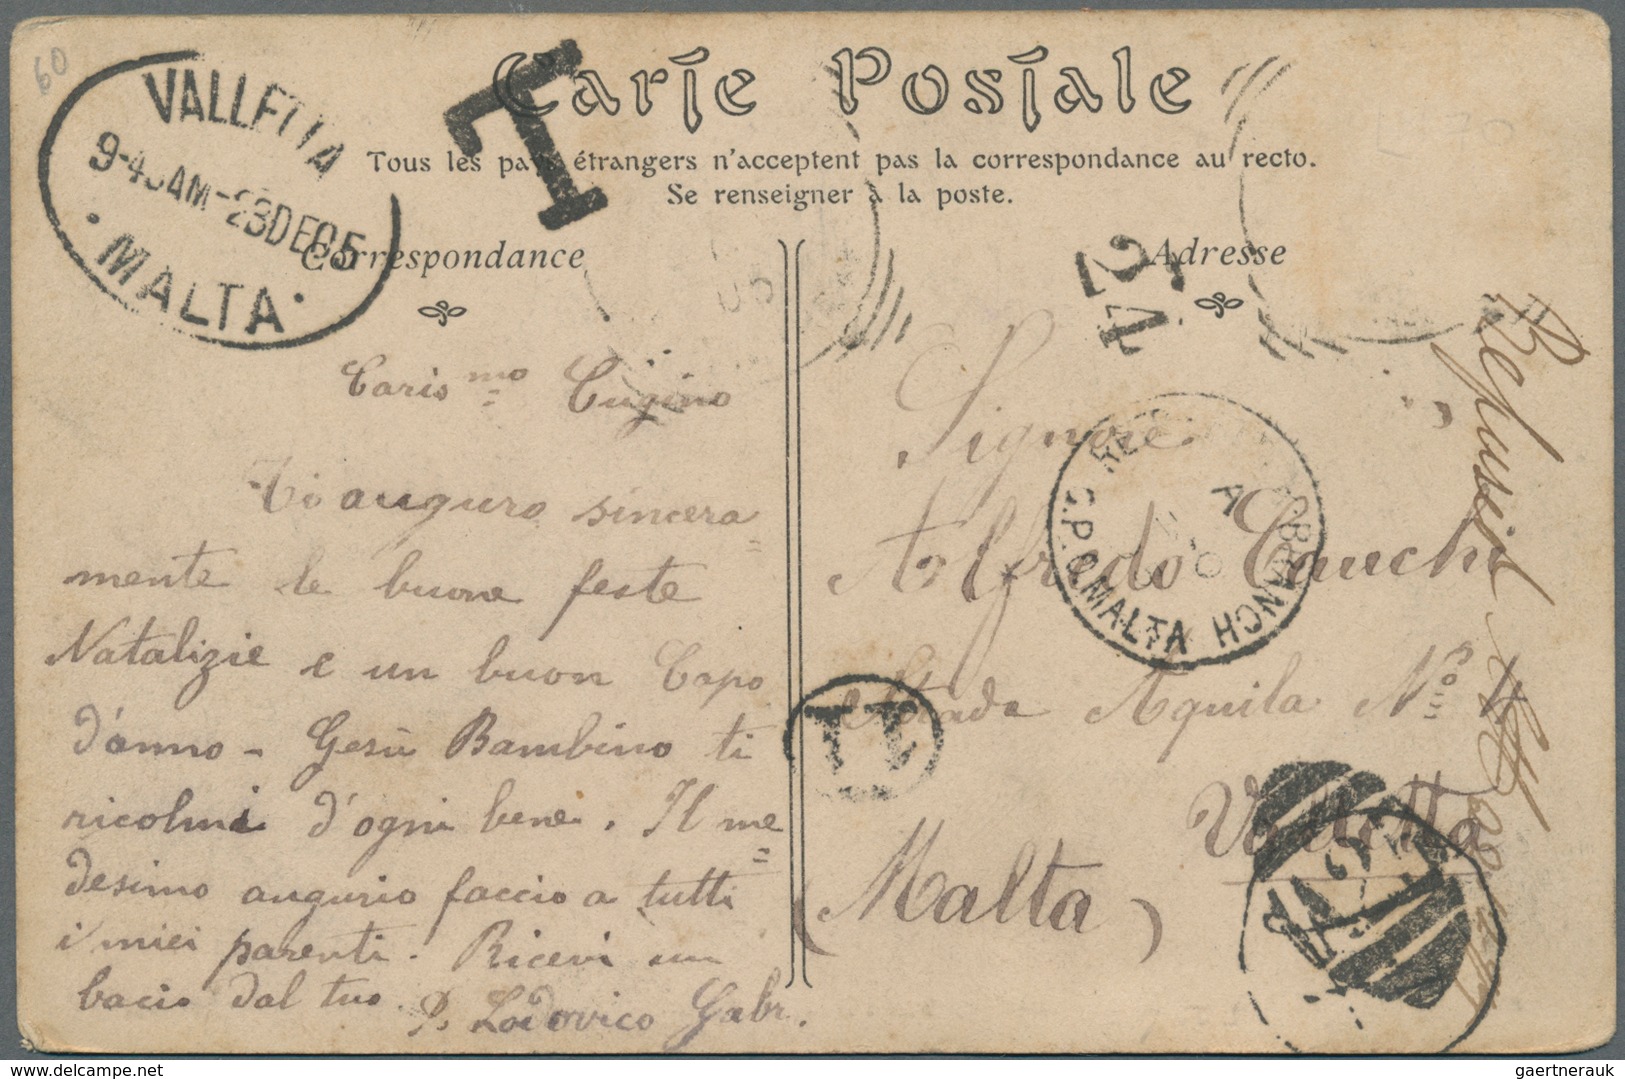 60
VALLETTA
9-45AM-23DE05
MALTA
T
Carte Postale
Tous les pays étrangers n'acceptent pas la correspondance au recto.
Se renseigner à la poste.
Correspondance
Adresse
24
Caris mo Cugino
Ti auguro sincera=
mente le buone feste
Natalizie e un buon Capo
d'anno - Gesù Bambino ti
ricolmi d'ogni bene. Il me=
desimo augurio faccio a tutti
i miei parenti. Ricevi un
bacio dal tuo
P. Lodovico Gabr.
Signore
Alfredo Cauchi
Strada Aquila No 3
Valletta
(Malta)
A
BRANCH
G.P.O. MALTA
Refused